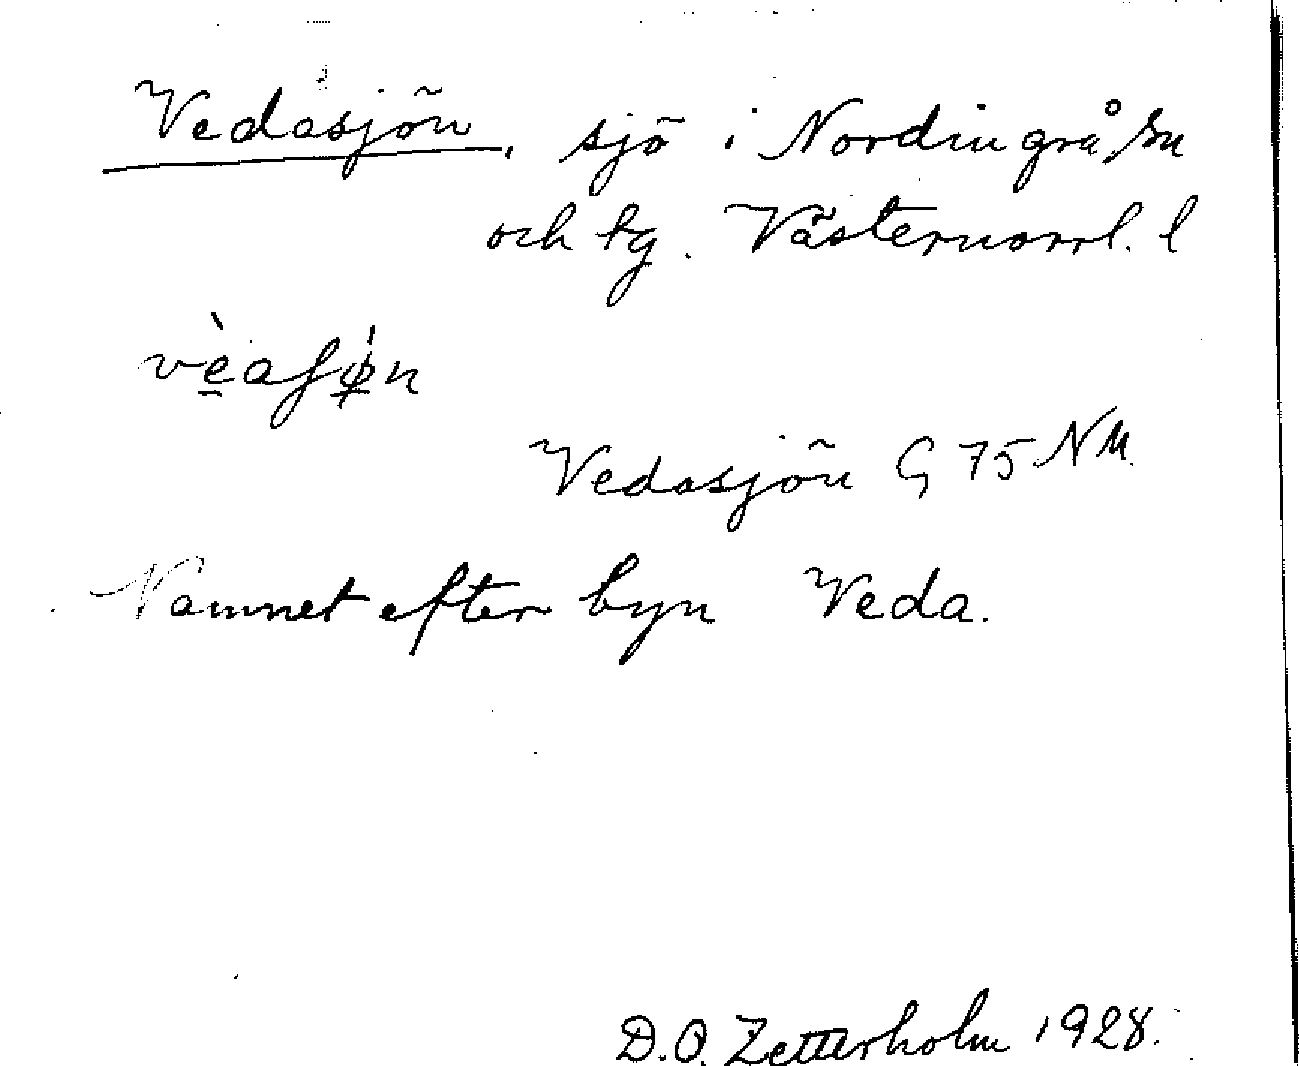 Vedasjön, sjö i Nordingrå sn
och tg. Västernorrl. l
vè̱aʃǿ̱n
Vedasjön G 75 NM.
Namnet efter byn Veda.
D.O. Zetterholm 1928.